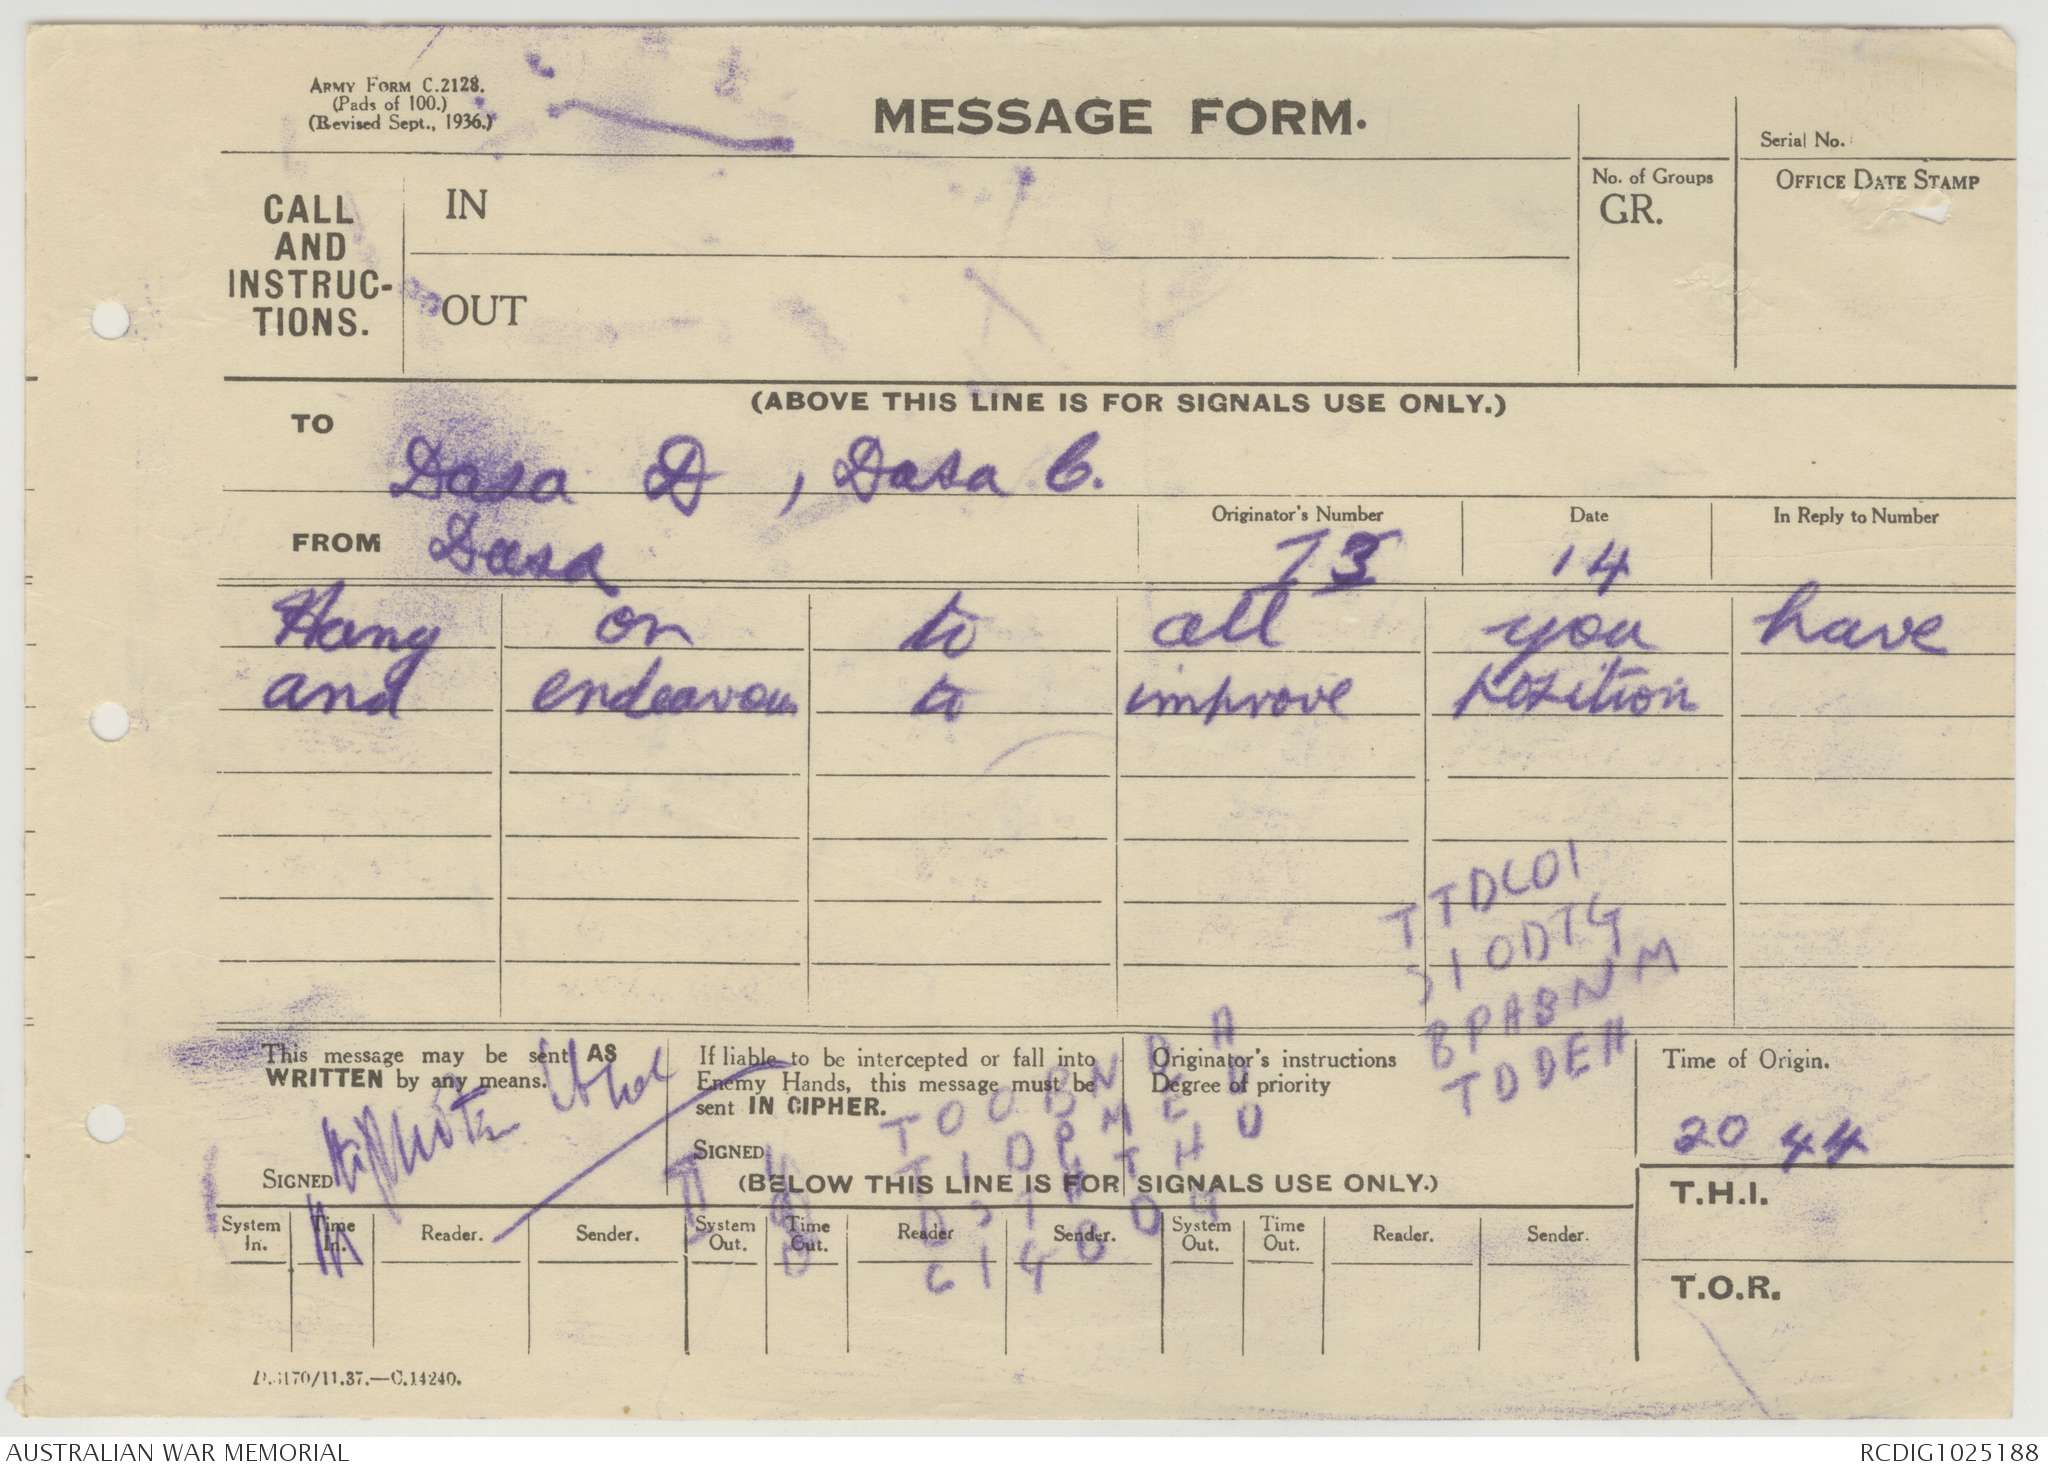 ARMY FORM C.2128.
(Pads of 100.)
(Revised Sept., 1936.)
MESSAGE FORM.
Serial No.
CALL AND INSTRUC-TIONS.
IN
OUT
No. of Groups
GR.
OFFICE DATE STAMP
(ABOVE THIS LINE IS FOR SIGNALS USE ONLY.)
TO Dasa D, Dasa C.
FROM Dasa
Originator's Number 73
Date 14
In Reply to Number
Hang on to all you have
and endeavour to improve position
TTDLOI
IODTG
BPABNM
TDDEH
This message may be sent AS
WRITTEN by any means.
SIGNED
If liable to be intercepted or fall into
Enemy Hands, this message must be
sent IN CIPHER.
SIGNED
Originator's instructions
Degree of priority
Time of Origin.
2044
(BELOW THIS LINE IS FOR SIGNALS USE ONLY.)
T.H.I.
System In. Time In. Reader. Sender. System Out. Time Out. Reader Sender. System Out. Time Out. Reader. Sender.
T.O.R.
D.6170/11.37.—C.14240.
AUSTRALIAN WAR MEMORIAL
RCDIG1025188